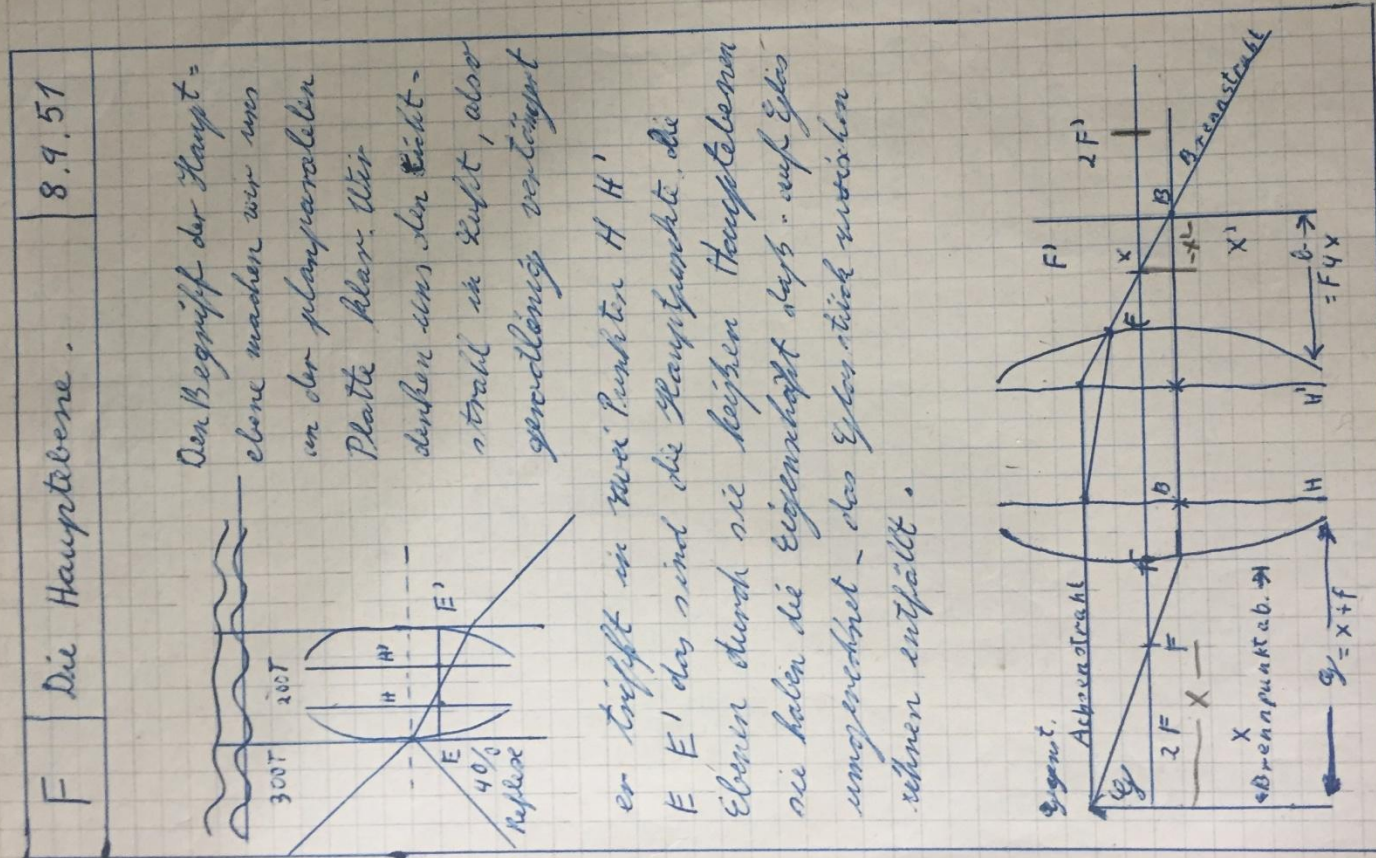 F Die Hauptebene. 8.9.51
300T 200T
H H'
E E'
4% Reflex
Den Begriff der Haupt=
ebene machen wir uns
an der planparalelen
Platte klar. Wir
denken uns den Licht-
strahl in Luft, also
geradlinig verlängert
er trifft in zwei Punkten H H'
E E' das sind die Hauptpunkte, die
Ebenen durch sie heißen Hauptebenen
sie haben die Eigenschaft daß - auf Glas
umgerechnet - das Glasstück zwischen
ihnen entfällt.
Gegenst.
Achsenstrahl
G
2F F
X
X
Brennpunktab.
G = x + f
F B H
H'
F
F' 2F'
X' B
-x'
X'
Brennstrahl
b
= F 4 x